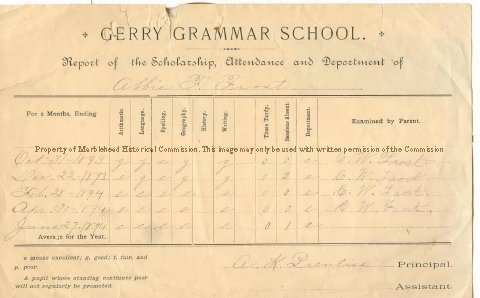 GERRY GRAMMAR SCHOOL.
Report of the Scholarship, Attendance and Department of
Abbie F. Frost
For 2 Months, Ending
Arithmetic.
Language.
Spelling.
Geography.
History.
Writing.
Times Tardy.
Sessions Absent.
Deportment.
Examined by Parent.
Property of Marblehead Historical Commission. This image may only be used with written permission of the Commission.
Oct. 31 1893 g g e g g 0 0 e C. W. Frost
Dec. 22, 1893 0 2 e C. W. Frost
Feb. 28 - 1894 0 0 e C. W. Frost.
Apr. 30 1894 0 0 e C. W. Frost.
June 27, 1894 0 1 e
AVERAGE for the Year.
e means excellent; g, good; f, fair, and
p, poor.
A pupil where standing continues poor
will not regularly be promoted.
A. H. Prentiss Principal.
Assistant.